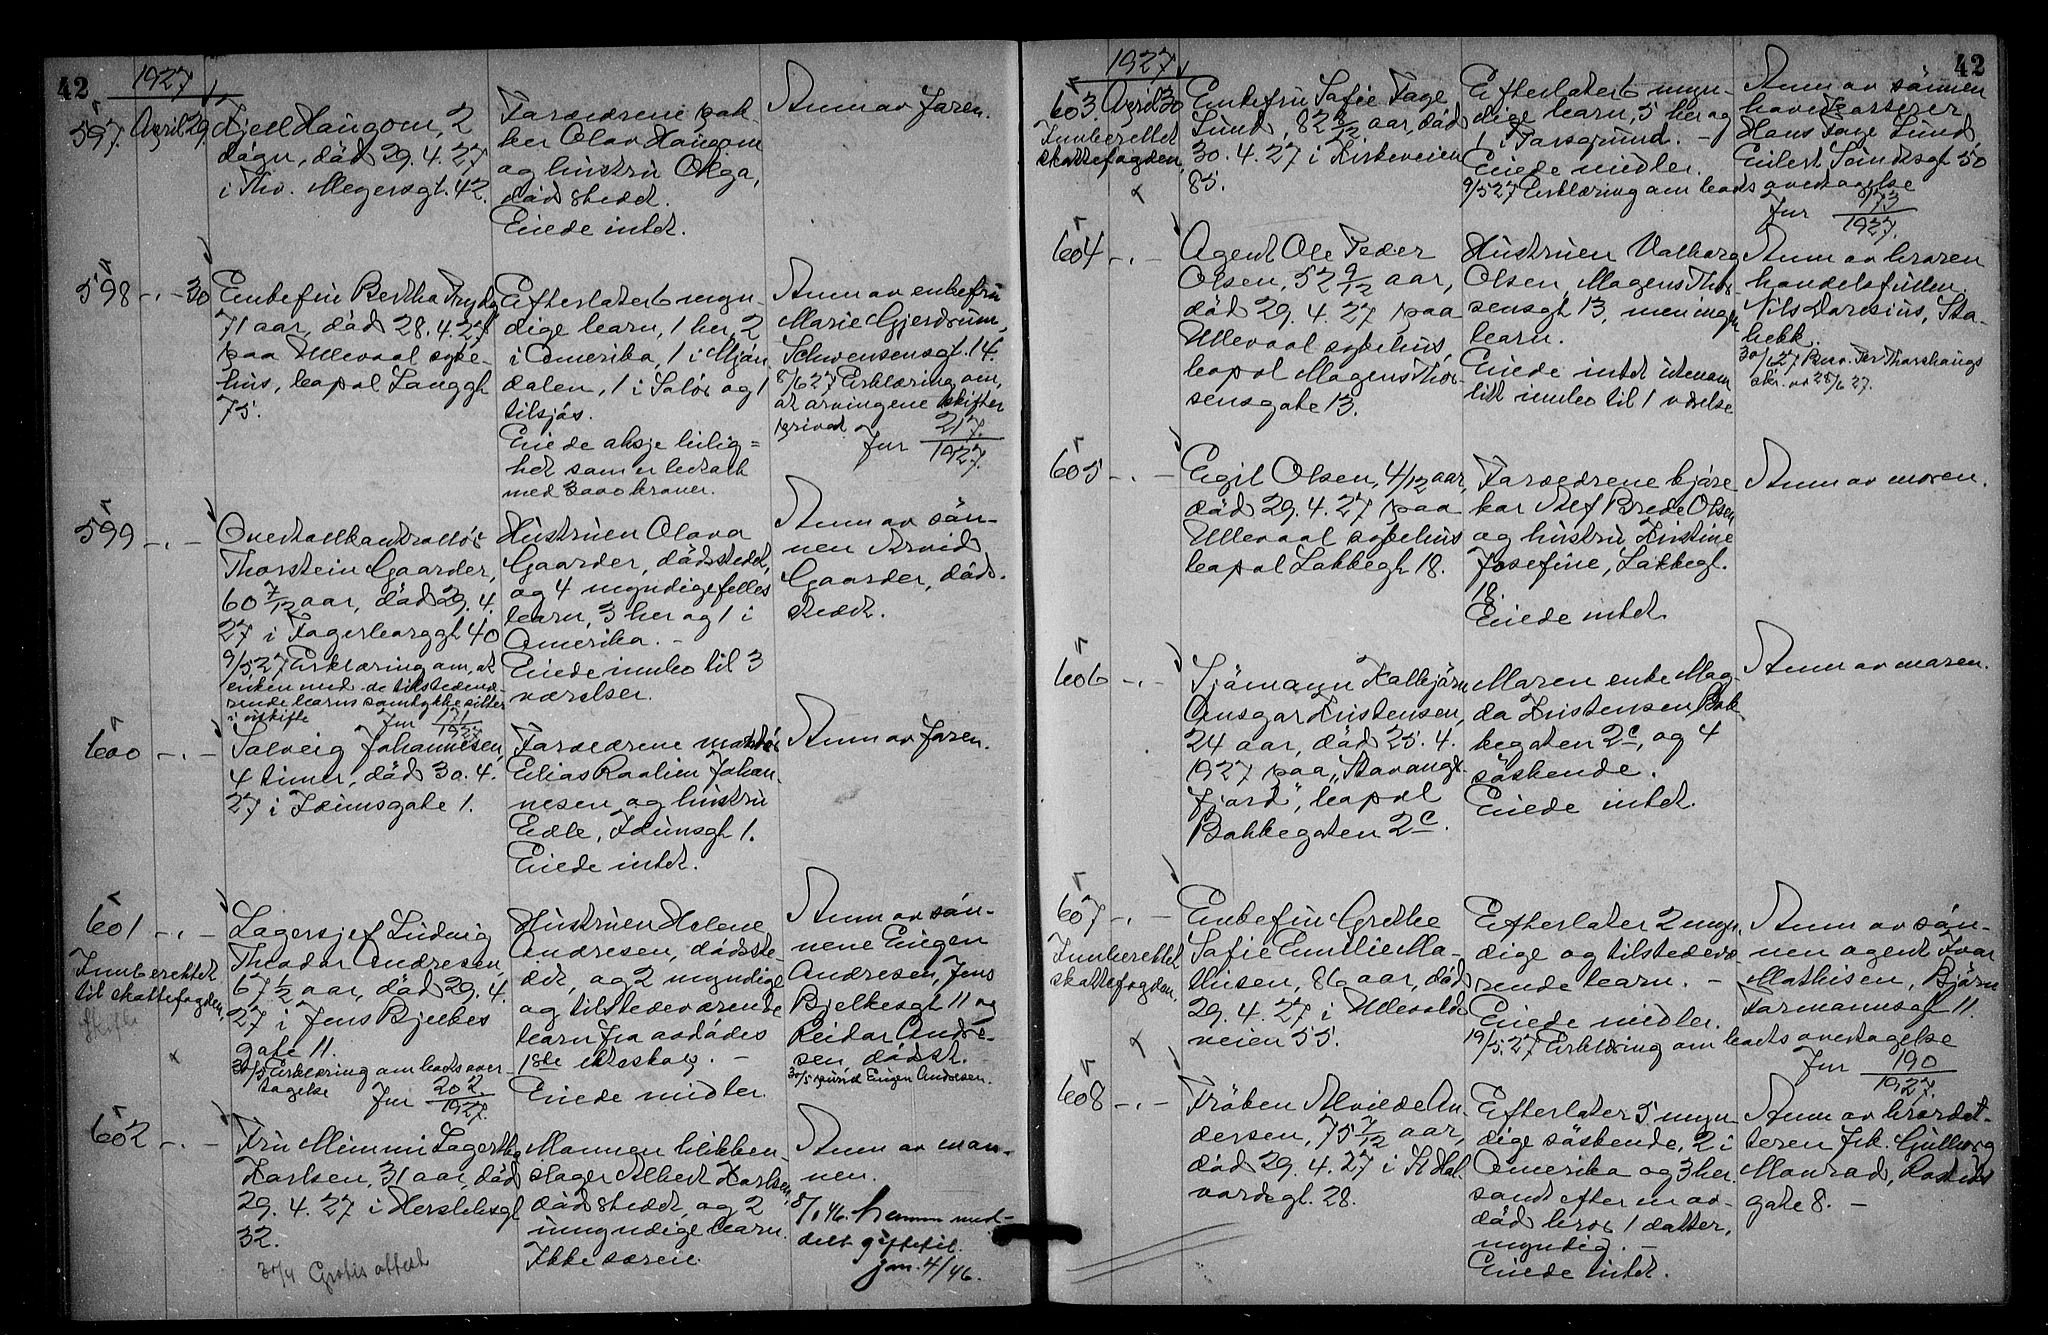 42
1927
597. April 29.
Kjell Haugom, 2
døgn, död 29. 4. 27
i Thv. Meyersgt. 42.
Forældrene pak-
ker Olav Haugom
og hustru Olga,
dödstedet.
Eiede intet.
Anm av faren.
598 -.- 30
Enkefru Bertha
71 aar, död 28. 4. 27
paa Ullevaal syke-
hus, bopæl Langgt
75.
Efterlater 6 myn-
dige barn, 1 her, 2
i Amerika, 1 i Mjön-
dalen, 1 i Solör og 1
tilsjös.
Eiede aksje leilig=
het som er betalt
med 3000 kroner.
Anm av enkefru
Marie Gjerdrum,
Schwensensgt. 14.
8/6 27 Erklæring om,
at arvingene skifter
privat.
Jnr 217/1927.
599 -.-
Overtollkontrollör
Thorstein Gaarder,
60 7/12 aar, död 29. 4.
27 i Fagerborggt 40
9/5. 27 Erklæring om, at
enken med de tilstedevæ-
rende barns samtykke sitter
i uskifte
Jnr 171/1927
Hustruen Olava
Gaarder, dödstedet,
og 4 myndige felles
barn, 3 her og 1 i
Amerika. -
Eiede innbo til 3
værelser.
Anm av sön-
nen Arvid
Gaarder, död-
stedet.
600 -.-
Solveig Johannesen,
4 timer, död 30. 4.
27 i Idunsgate 1.
Forældrene
Elias Johan-
nesen og hustru
Edle, Idunsgt 1.
Eiede intet.
Anm av faren.
601 -.-
Innberettet
til skattefogden
x
Lagersjef Ludvig
Theodor Andresen,
67 1/2 aar, död 29. 4.
27 i Jens Bjelkes
gate 11.
30/5 Erklæring om boets over-
tagelse
Jnr 202/1927.
Hustruen Helene
Andresen, dödste-
det, og 2 myndige
og tilstedeværende
barn fra avdödes
1ste ekteskap. -
Eiede midler.
Anm av sön-
nene Eugen
Andresen, Jens
Bjelkesgt 11 og
Reidar Andre-
sen, dödst.
30/5 Eugen Andresen.
602 -.-
Fru Mimmi Lagertha
Karlsen, 31 aar, död
29. 4. 27 i Herslebsgt
32.
30/4 Gratis attest
Mannen blikken-
slager Albert Karlsen,
dödstedet, og 2
umyndige barn.
Ikke særeie.
Anm av man-
nen.
8/1 46. med-
delt giftetil.
jnr. 4/46.
42
1927
603. April 30
Innberettet
skattefogden,
x
Enkefru Sofie Faye
Lund, 82 8/12 aar, död
30. 4. 27 i Kirkeveien
85.
Efterlater 6 myn-
dige barn, 5 her og
1 i Porsgrund. -
Eiede midler.
9/5 27 Erklæring om boets overtagelse
Jnr 173/1927.
Anm av sönnen
Hans Faye Lund,
Eilert Sundtsgt 50
604 -.-
Agent Ole Peder
Olsen, 52 9/12 aar,
död 29. 4. 27 paa
Ullevaal sykehus,
bopæl Mogens Thor-
sensgate 13.
Hustruen Valborg
Olsen, Mogens Thor
sensgt 13, men ingen
barn.
Eiede intet utenom
litt innbo til 1 værelse
Anm av broren
handelsfullm.
Nils Sta-
bekk.
605 -.-
Egil Olsen, 4/12 aar,
död 29. 4. 27 paa
Ullevaal sykehus
bopæl Lakkegt 18.
Forældrene kjöre
kar Alf Brede Olsen
og hustru Kristine
Josefine, Lakkegt.
18.
Eiede intet.
Anm av moren.
606 -.-
Sjömann Kolbjörn
Ansgar Kristensen,
24 aar, död 25. 4.
1927 paa „Stavanger-
fjord", bopæl
Bakkegaten 2c.
Moren enke Mag-
da Kristensen, Bak-
kegaten 2c, og 4
söskende.
Eiede intet.
Anm av moren.
607 -.-
Innberettet
skattefogden.
x
Enkefru Grethe
Sofie Emilie Ma-
thisen, 86 aar, död
29. 4. 27 i Ullevolds
veien 55.
Efterlater 2 myn-
dige og tilstedevæ-
rende barn. -
Eiede midler.
19/5. 27 Erklæring om boets overtagelse
Jnr 190/1927.
Anm av sön-
nen agent Ivar
Mathisen, Björn
Farmannsgt 11.
608 -.-
Fröken Alvilde An-
dersen, 75 7/12 aar,
död 29. 4. 27 i St Hal-
vardsgt. 28.
Efterlater 5 myn
dige söskende, 2 i
Amerika og 3 her
samt efter en av-
död bror 1 datter,
myndig. -
Eiede intet.
Anm av brordat-
teren frk. Gullborg
Monrad,
gate 8. -